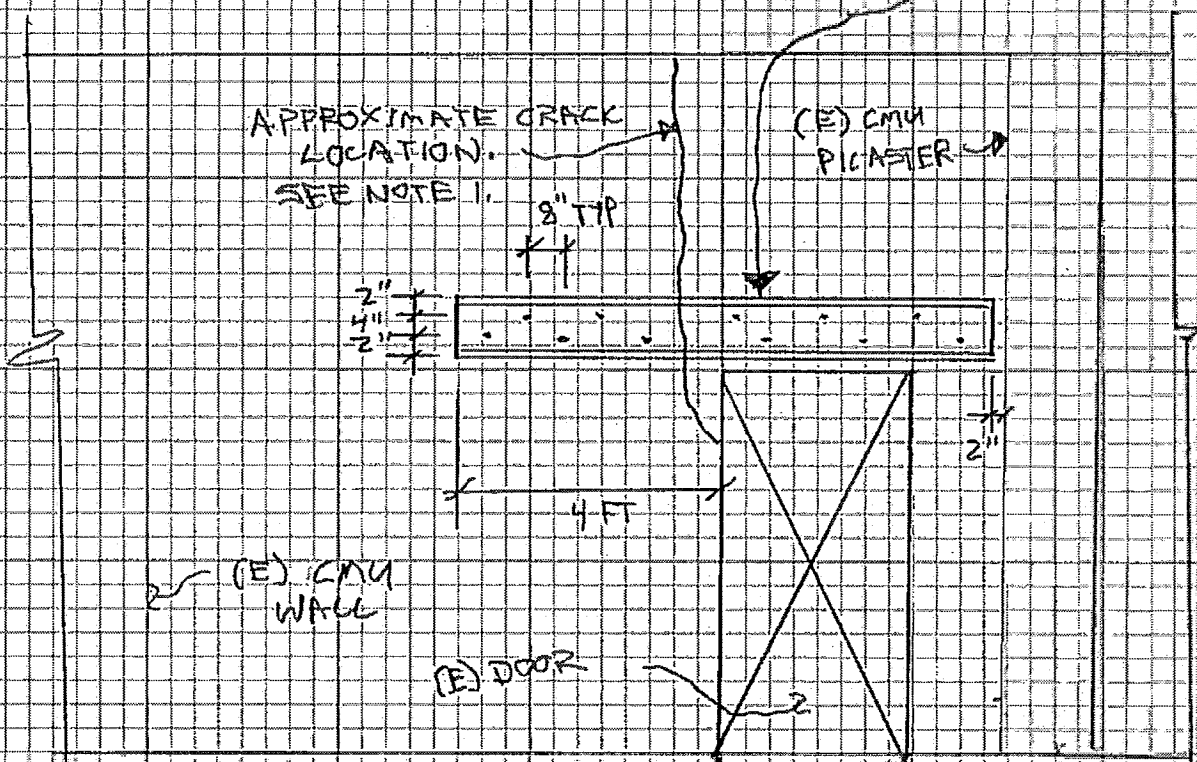 APPROXIMATE CRACK
LOCATION.
SEE NOTE 1.
(E) CMU
PILASTER
8" TYP
2"
4"
2"
2"
4 FT
(E) CMU
WALL
(E) DOOR